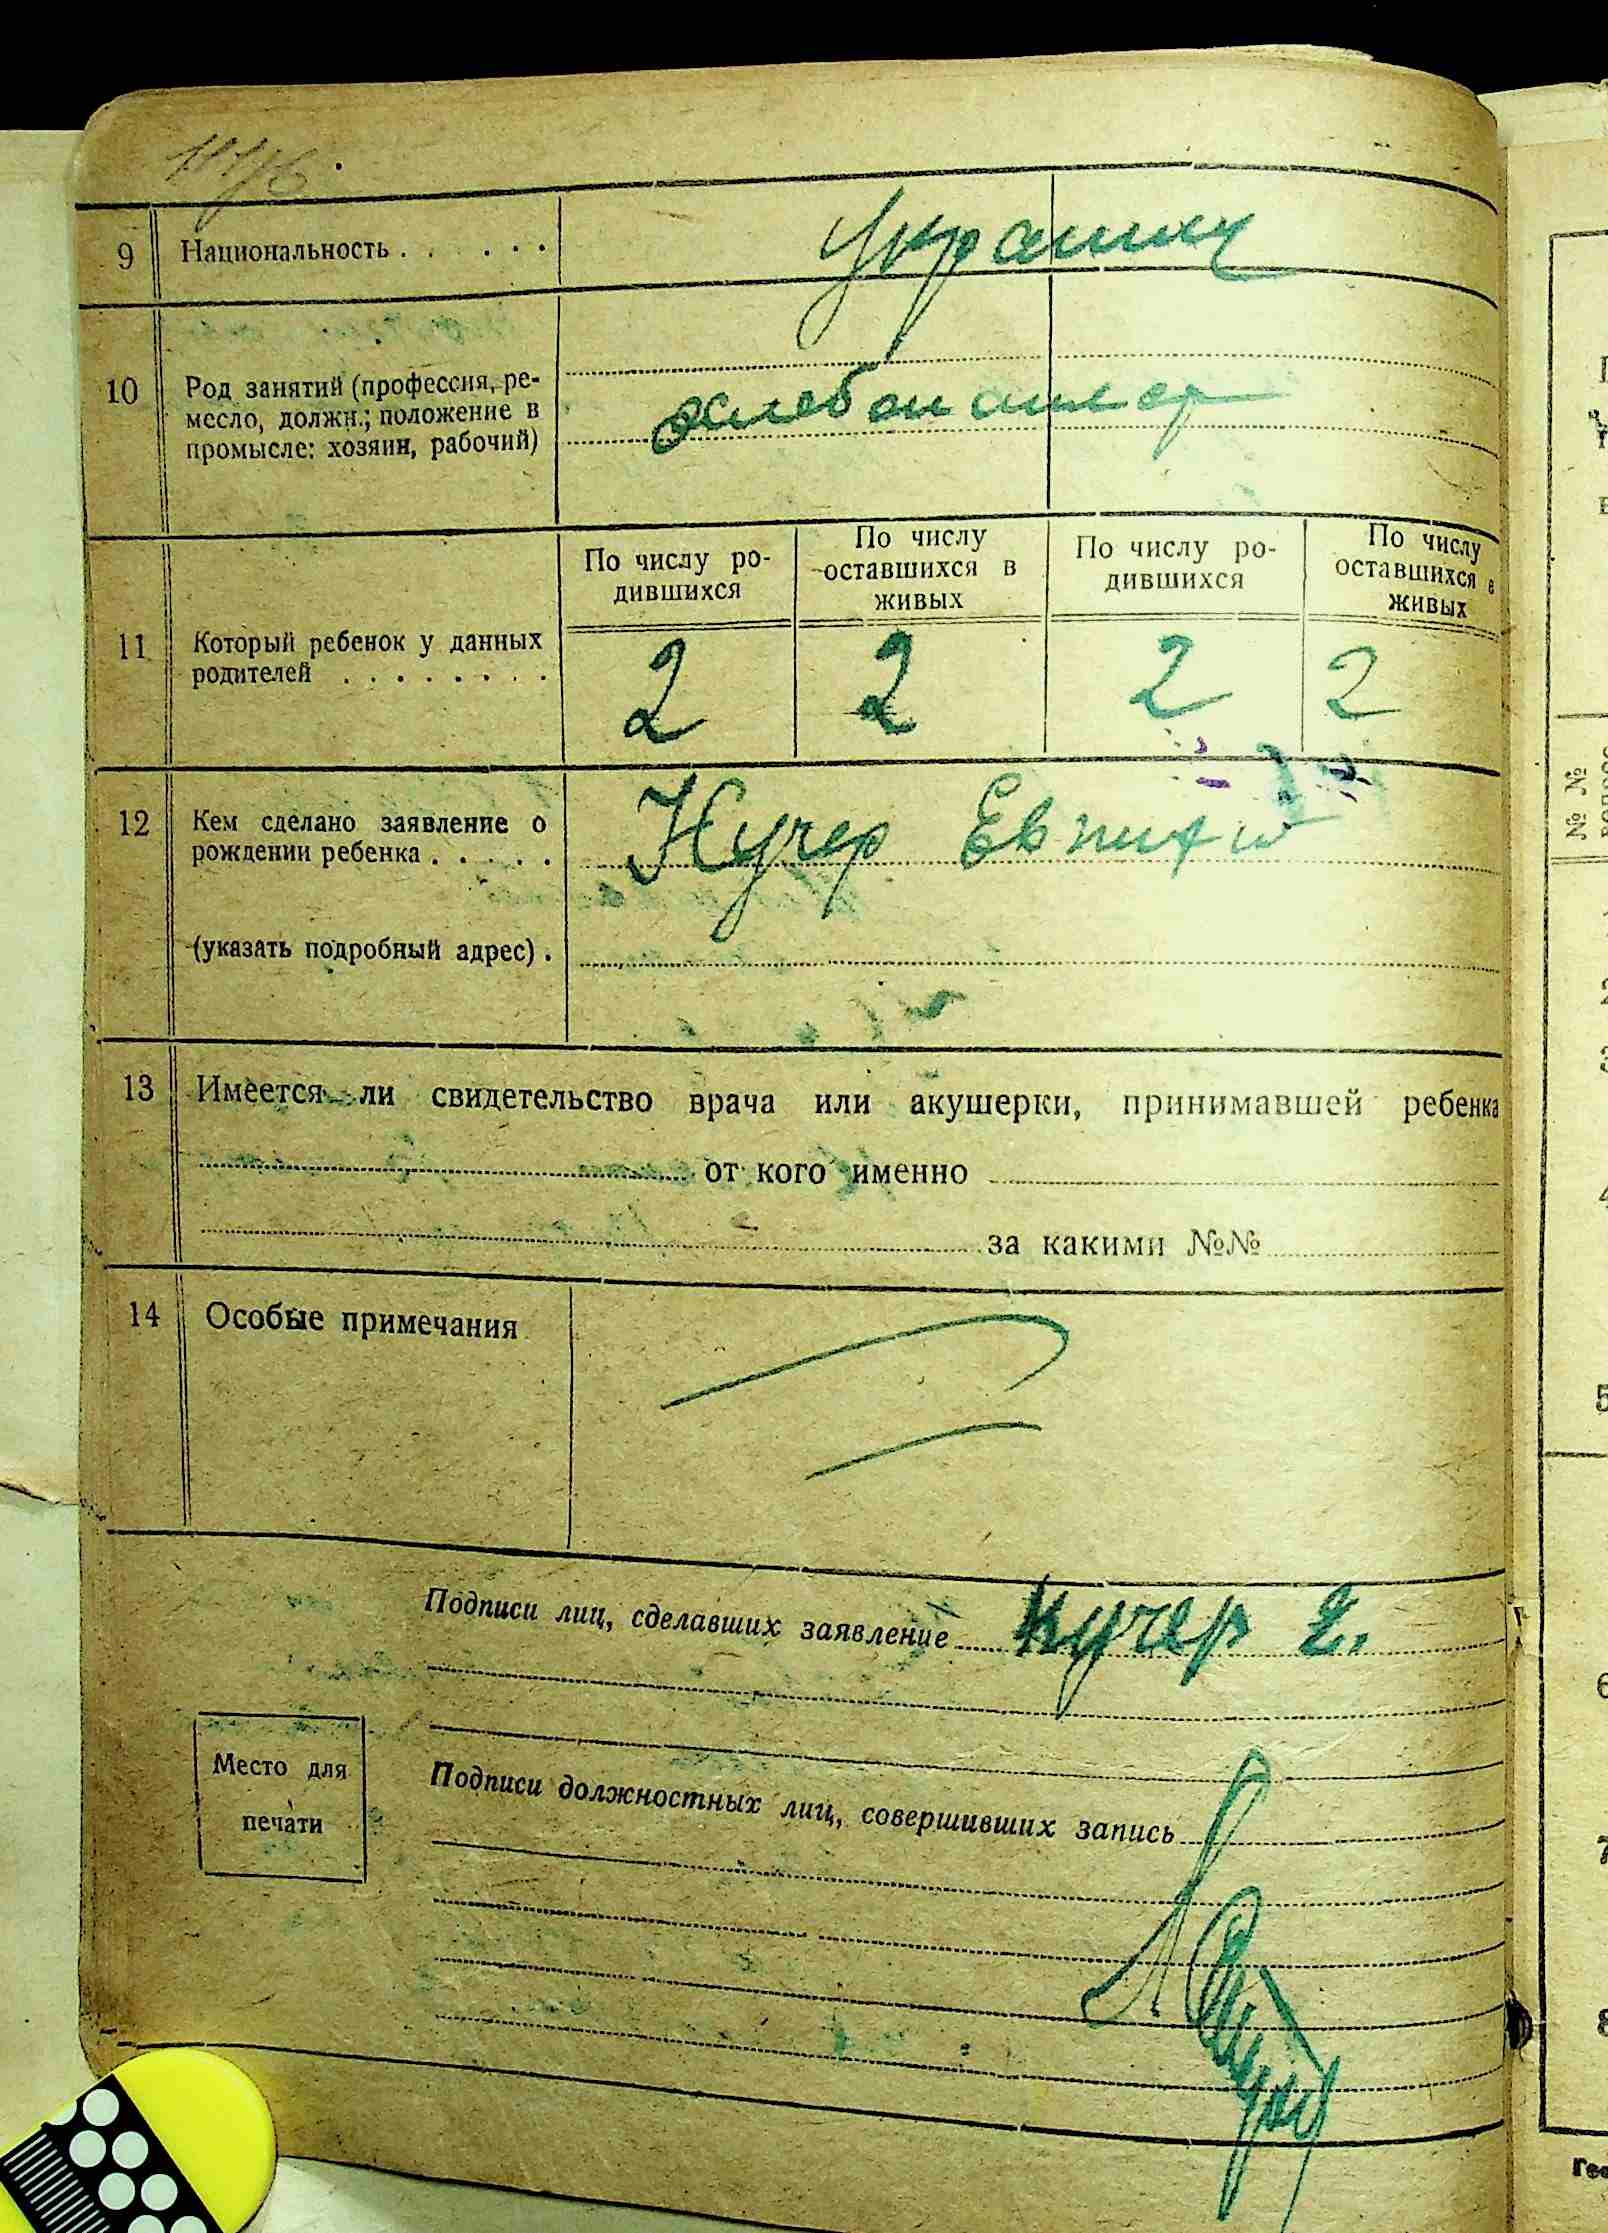 9 Национальность . . . . . . украинц
10 Род занятий (профессия, ре-
месло, должн.; положение в
промысле: хозяин, рабочий)
По числу ро-
дившихся
По числу
оставшихся в
живых
По числу ро-
дившихся
По числу
оставшихся в
живых
11 Который ребенок у данных
родителей . . . . . . . .
2 2 2 2
12 Кем сделано заявление о
рождении ребенка . . . . . Кучер Евтихий
(указать подробный адрес) .
13 Имеется ли свидетельство врача или акушерки, принимавшей ребенка
от кого именно
за какими №№
14 Особые примечания
Подписи лиц, сделавших заявление Кучер Е.
Место для
печати
Подписи должностных лиц, совершивших запись
№ №
5
6
7
8